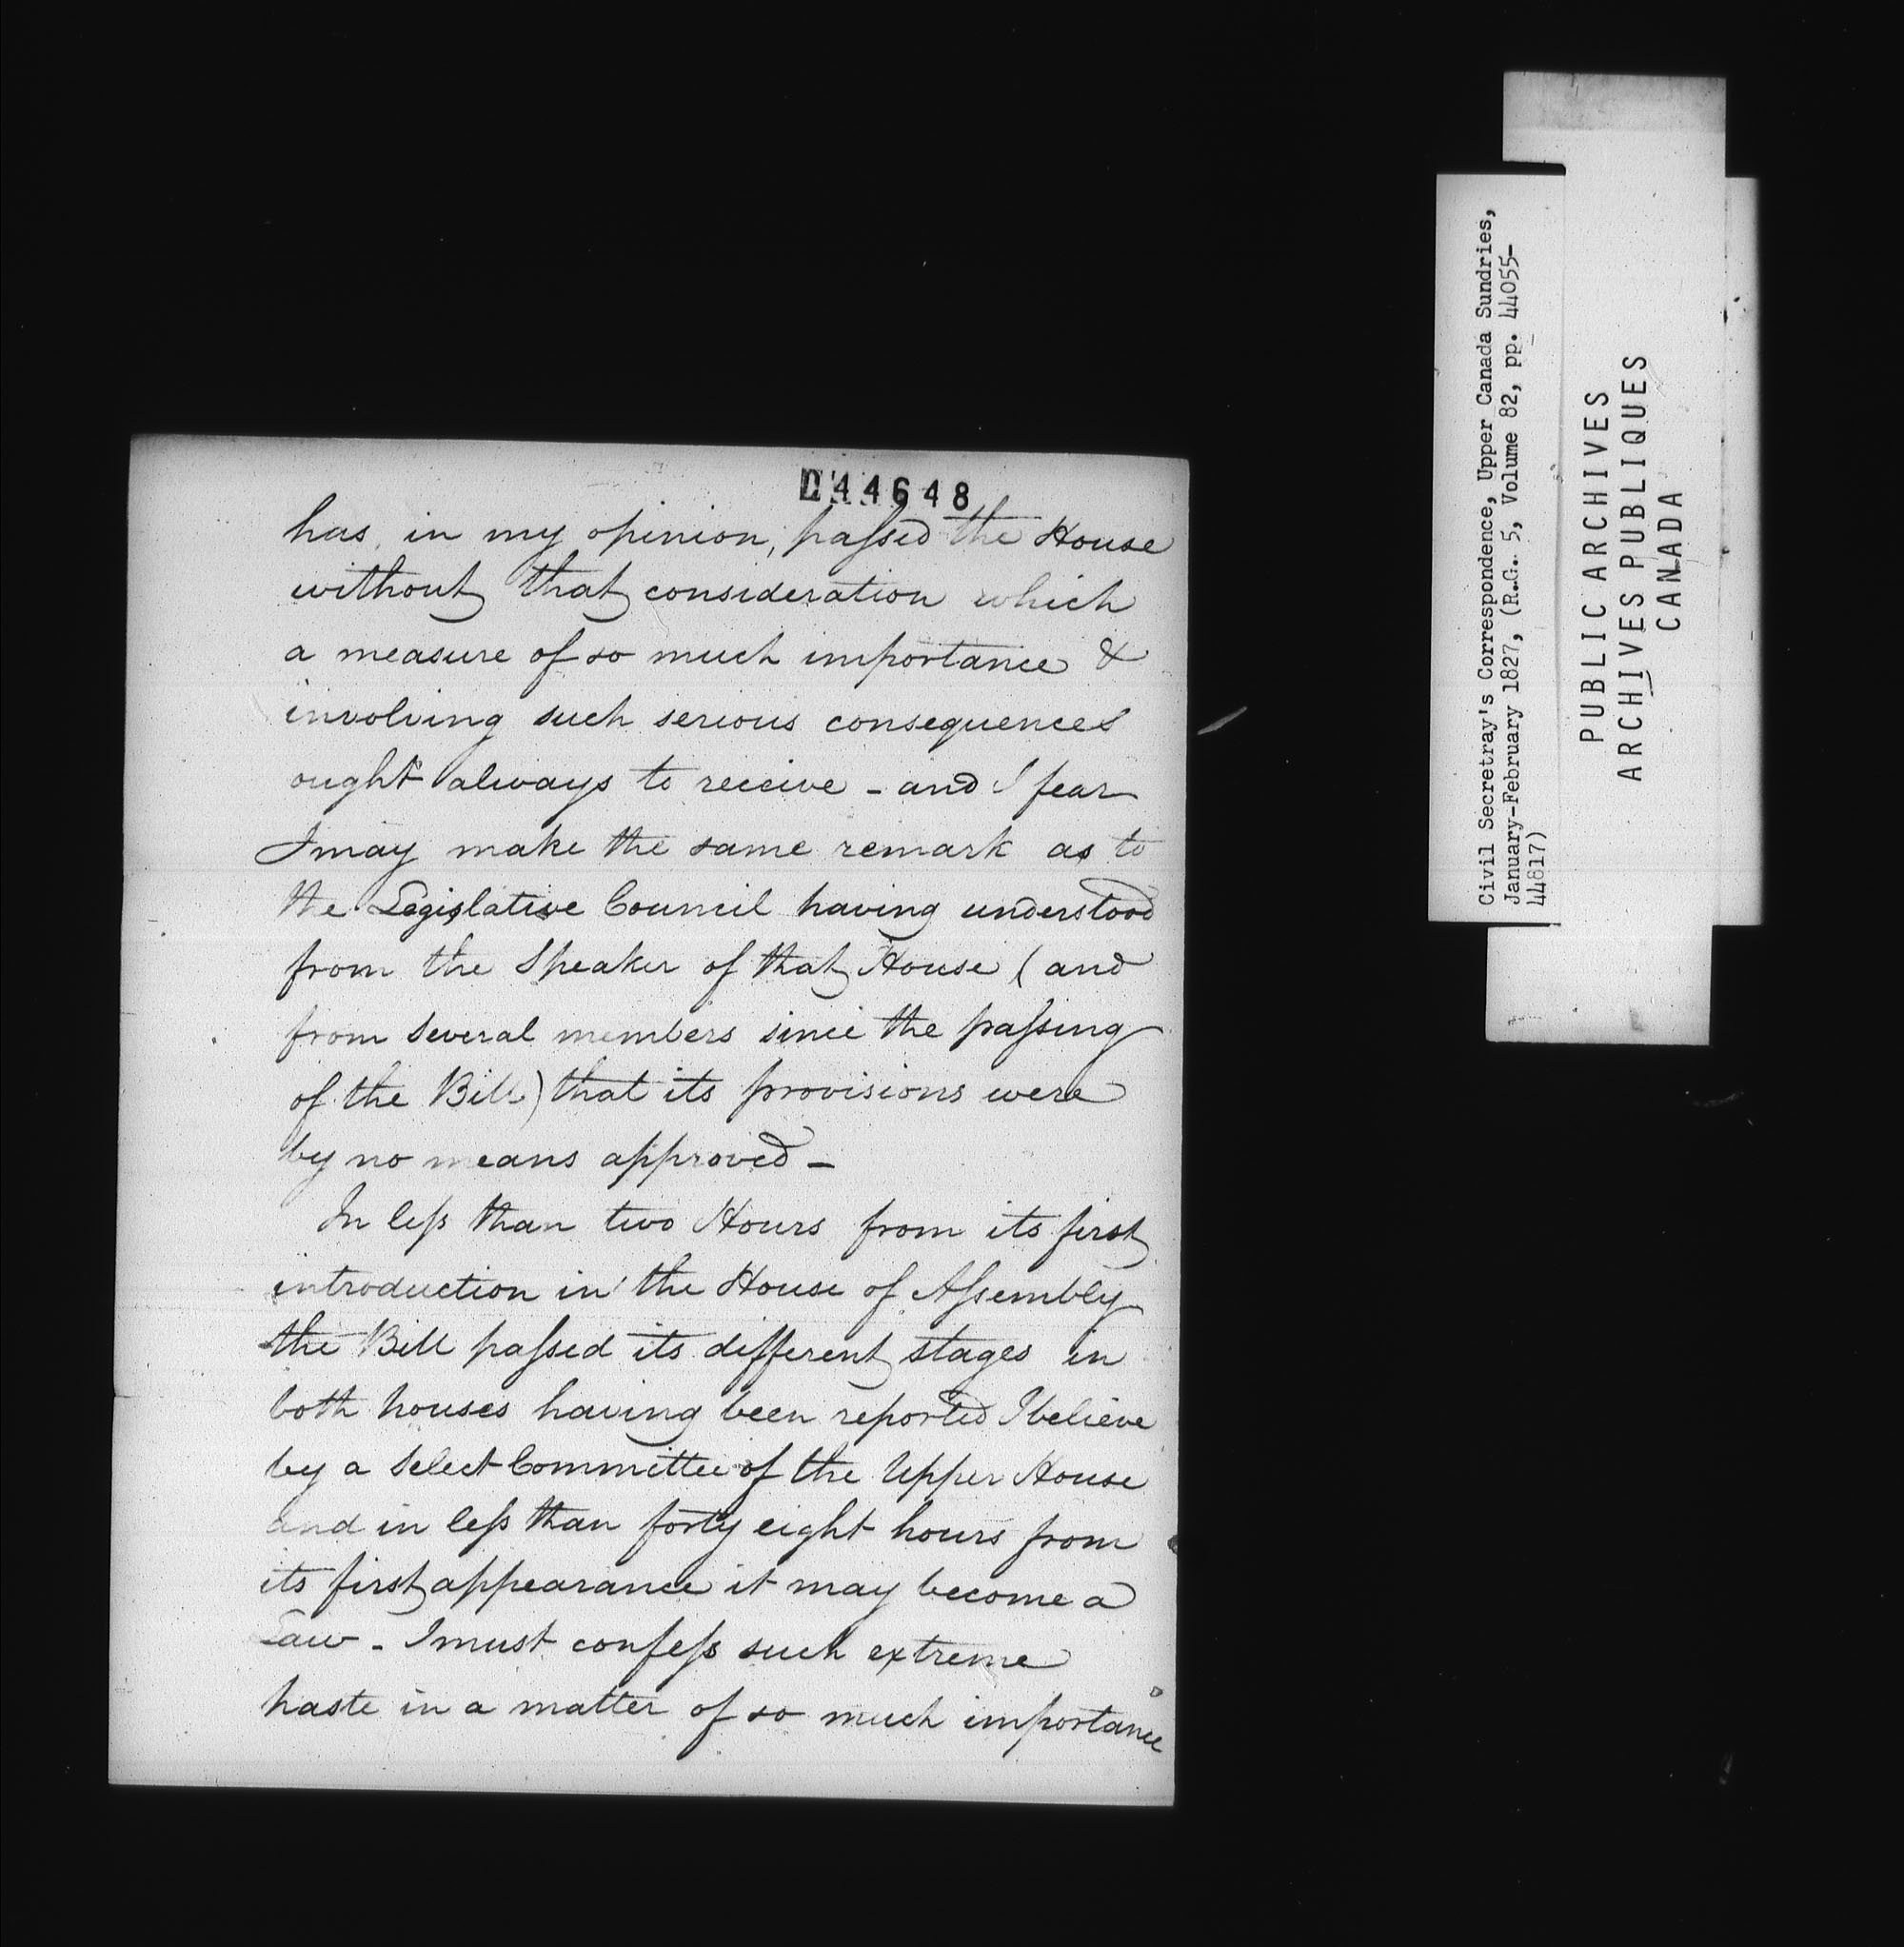 D44648
has, in my opinion, paſsed the House
without that consideration which
a measure of so much importance &
involving such serious consequences
ought always to receive - and I fear
I may make the same remark as to
the Legislative Council having understood
from the Speaker of that House (and
from several members since the paſsing
of the Bill) that its provisions were
by no means approved -
In leſs than two Hours from its first
introduction in the House of Aſsembly
the Bill paſsed its different stages in
both houses having been reported I believe
by a Select Committee of the Upper House
and in leſs than forty eight hours from
its first appearance it may become a
Law - I must confeſs such extreme
haste in a matter of so much importance
Civil Secretray's Correspondence, Upper Canada Sundries,
January-February 1827, (R.G. 5, Volume 82, pp. 44055-
44817)
PUBLIC ARCHIVES
ARCHIVES PUBLIQUES
CANADA